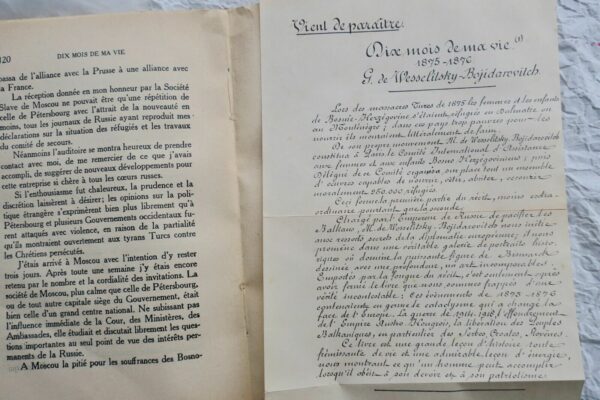 120 DIX MOIS DE MA VIE
passa de l'alliance avec la Prusse à une alliance avec
la France.
La réception donnée en mon honneur par la Société
Slave de Moscou ne pouvait être qu'une répétition de
celle de Pétersbourg avec l'attrait de la nouveauté en
moins, tous les journaux de Russie ayant reproduit mes
déclarations sur la situation des réfugiés et les travaux
du comité de secours.
Néanmoins l'auditoire se montra heureux de prendre
contact avec moi, de me remercier de ce que j'avais
accompli, de suggérer de nouveaux développements pour
cette entreprise si chère à tous les cœurs russes.
Si l'enthousiasme fut chaleureux, la prudence et la
discrétion laissèrent à désirer; les opinions sur la poli-
tique étrangère s'exprimèrent bien plus librement qu'à
Pétersbourg et plusieurs Gouvernements occidentaux fu-
rent attaqués avec violence, en raison de la partialité
qu'ils montraient ouvertement aux tyrans Turcs contre
les Chrétiens persécutés.
J'étais arrivé à Moscou avec l'intention d'y rester
trois jours. Après toute une semaine j'y étais encore
retenu par le nombre et la cordialité des invitations. La
société de Moscou, plus calme que celle de Pétersbourg,
ou de tout autre capitale siège du Gouvernement, était
bien celle d'un grand centre national. Ne subissant pas
l'influence immédiate de la Cour, des Ministères, des
Ambassades, elle étudiait et discutait librement les ques-
tions importantes au seul point de vue des intérêts per-
manents de la Russie.
A Moscou la pitié pour les souffrances des Bosno-
Vient de paraître.
Dix mois de ma vie (1)
1875-1876
G. de Wesselitsky-Bojidarovitch.
Lors des massacres Turcs de 1875 les femmes et les enfants
de Bosnie-Herzégovine s'étaient réfugiés en Dalmatie ou
au Monténégro; dans ces pays trop pauvres pour les
nourrir ils mouraient littéralement de faim.
De son propre mouvement M. de Wesselitsky-Bojidarovitch
constitua à Paris le Comité International d'Assistance
aux femmes et aux enfants Bosno-Herzégoviniens; puis
Délégué de ce Comité organisa sur place tout un ensemble
d'œuvres capables de nourrir, vêtir, abriter, secourir
moralement 250.000 réfugiés.
Ceci forme la première partie du récit, moins extra-
ordinaire pourtant que la seconde.
Chargé par l'Empereur de Russie de pacifier les
Balkans, M. de Wesselitsky-Bojidarovitch nous initie
aux ressorts secrets de la diplomatie européenne, il nous
promène dans une véritable galerie de portraits histo-
riques où domine la puissante figure de Bismarck
dessinée avec une profondeur, un art incomparables.
Emportés par la fougue du récit, c'est seulement après
avoir fermé le livre que nous sommes frappés d'une
vérité incontestable: Ces événements de 1875-1876
contenaient en germe le cataclysme qui a changé la
face de l'Europe. La guerre de 1914-1918, l'effondrement
de l'Empire Austro-Hongrois, la libération des Peuples
Balkaniques, en particulier des Serbes, Croates, Slovènes.
Ce livre est une grande leçon d'histoire toute
frémissante de vie et une admirable leçon d'énergie,
nous montrant ce qu'un homme peut accomplir
lorsqu'il obéit à son devoir et à son patriotisme.